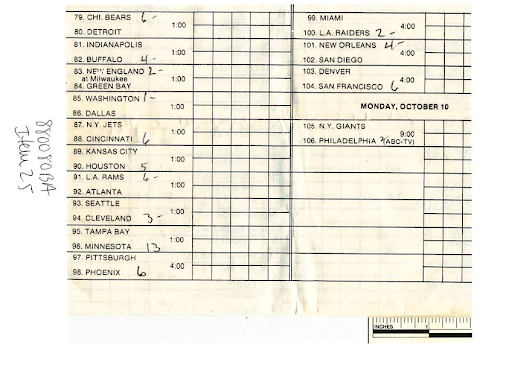 79. CHI. BEARS 6 -
1:00
80. DETROIT
81. INDIANAPOLIS
1:00
82. BUFFALO 4 -
83. NEW ENGLAND 2 -
at Milwaukee 1:00
84. GREEN BAY
85. WASHINGTON 1 -
1:00
86. DALLAS
87. N.Y. JETS
1:00
88. CINCINNATI 6
89. KANSAS CITY
1:00
90. HOUSTON 5
91. L.A. RAMS 6 -
1:00
92. ATLANTA
93. SEATTLE
1:00
94. CLEVELAND 3 -
95. TAMPA BAY
1:00
96. MINNESOTA 13
97. PITTSBURGH
4:00
98. PHOENIX 6
99. MIAMI
4:00
100. L.A. RAIDERS 2 -
101. NEW ORLEANS 4 -
4:00
102. SAN DIEGO
103. DENVER
4:00
104. SAN FRANCISCO 6
MONDAY, OCTOBER 10
105. N.Y. GIANTS
9:00
106. PHILADELPHIA (ABC-TV)
INCHES 1